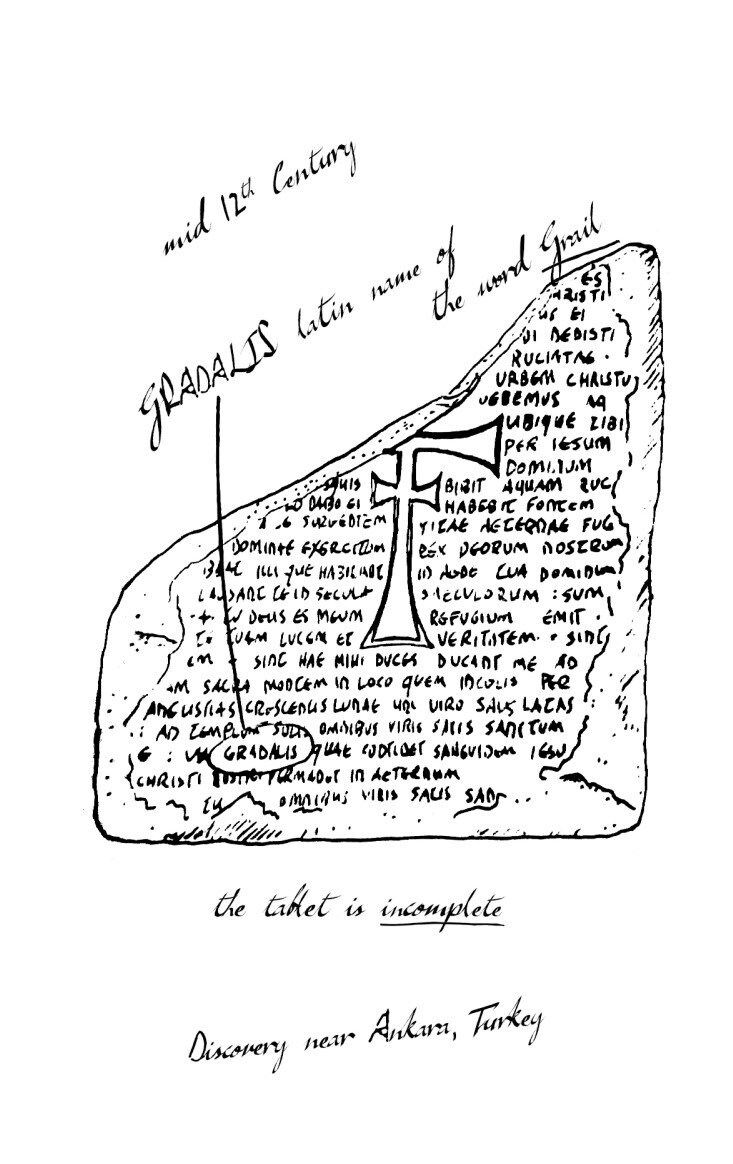 mid 12th Century
GRADALIS latin name of
the word Grail
ES
HRISTI
EI
UI DEDISTI
RUCIATAE ·
URBEM CHRISTU
UEBEMUS
UBIQUE TIBI
PER IESUM
DOMINUM
BIBIT AQUAM QUC
DABO EI HABEBIT FONTEM
VITAE AETERNAE FUG
DOMINAE EXERCITUUM REX DEORUM NOSTRUM
ILLI QUE HABITANT IN DOMINUM
IN SECULA SAECULORUM : SUM
TU DEUS ES MEUM REFUGIUM EMIT
TUAM LUCEM ET VERITATEM · SINT
EM · SINT HAE MIHI DUCES DUCANT ME AD
AM SACRA MONTEM IN LOCO QUEM INCOLIS PER
ANGUSTIAS CRESCENTIS LUNAE VIRO SALIS LATAS
: AD TEMPLUM SOLIS OMNIBUS VIRIS SATIS SANCTUM
E : GRADALIS QUAE CONTINET SANGUINEM IESU
CHRISTI PERMANOT IN AETERNUM
EU OMNIBUS VIRIS SALIS SAN
the tablet is incomplete
Discovery near Ankara, Turkey